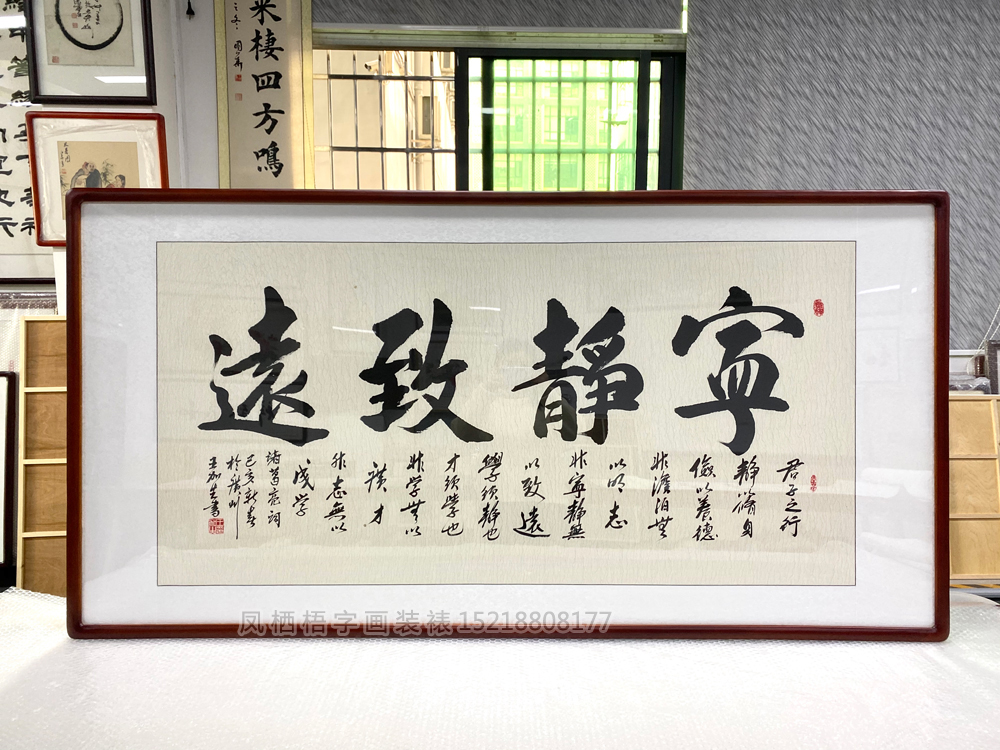 寧靜致遠
君子之行
静脩身
儉以養德
非澹泊無
以明志
非寧靜無
以致遠
學須靜也
才须學也
非学無以
廣才
非志無以
成学
諸葛亮詞
己亥新春
於廣州
書
棲四方鳴
凤栖梧字画装裱15218808177